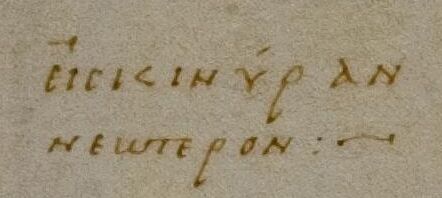 εἰϲ κινύραν
νεωτερον :~